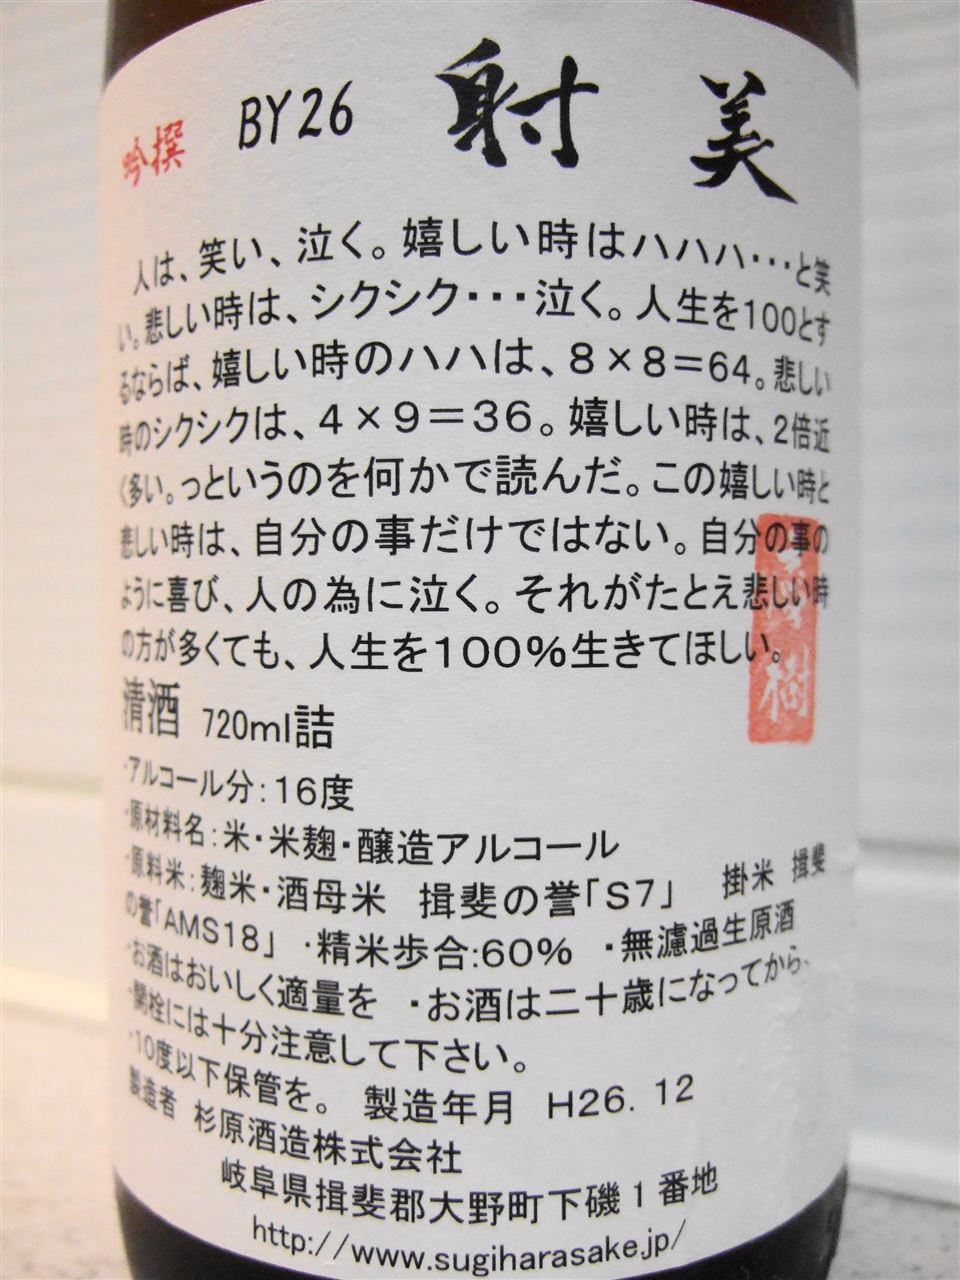 吟撰 BY26 射美
人は、笑い、泣く。嬉しい時はハハハ・・・と笑
い。悲しい時は、シクシク・・・泣く。人生を100とす
るならば、嬉しい時のハハは、8×8=64。悲しい
時のシクシクは、4×9=36。嬉しい時は、2倍近
く多い。っというのを何かで読んだ。この嬉しい時と
悲しい時は、自分の事だけではない。自分の事の
ように喜び、人の為に泣く。それがたとえ悲しい時
の方が多くても、人生を100%生きてほしい。
樹
清酒 720ml詰
・アルコール分:16度
・原材料名:米・米麹・醸造アルコール
・原料米:麹米・酒母米 揖斐の誉「S7」 掛米 揖斐
の誉「AMS18」 ・精米歩合:60% ・無濾過生原酒
・お酒はおいしく適量を ・お酒は二十歳になってから、
・開栓には十分注意して下さい。
・10度以下保管を。 製造年月 H26.12
製造者 杉原酒造株式会社
岐阜県揖斐郡大野町下磯1番地
http://www.sugiharasake.jp/